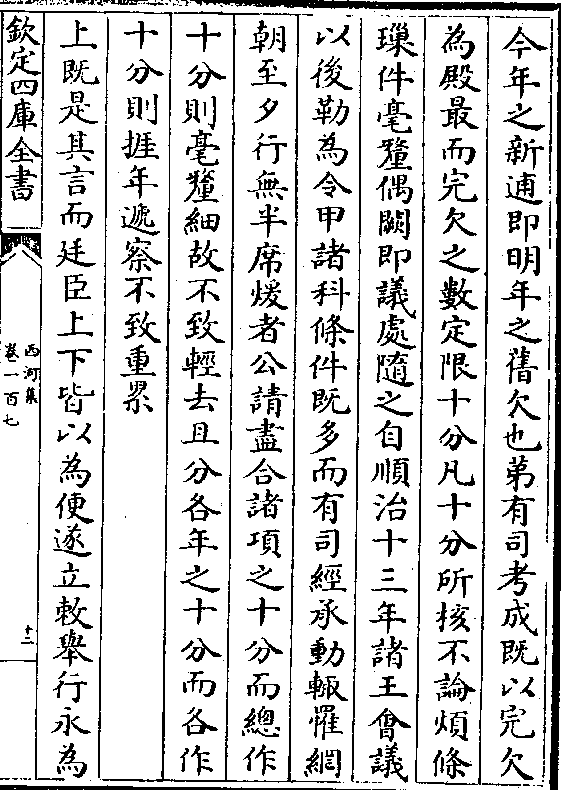 今年之新逋即明年之舊欠也第有司考成既以完欠
為殿最而完欠之數定限十分凡十分所核不論煩條
璅件毫釐偶闕即議處隨之自順治十三年諸王會議
以後勒為令甲諸科條件既多而有司經承動輙罹網
朝至夕行無半席煖者公請盡合諸項之十分而總作
十分則毫釐細故不致輕去且分各年之十分而各作
十分則捱年遞察不致重累
上既是其言而廷臣上下皆以為便遂立敕舉行永為
欽定四庫全書
西河集
卷一百七
十二